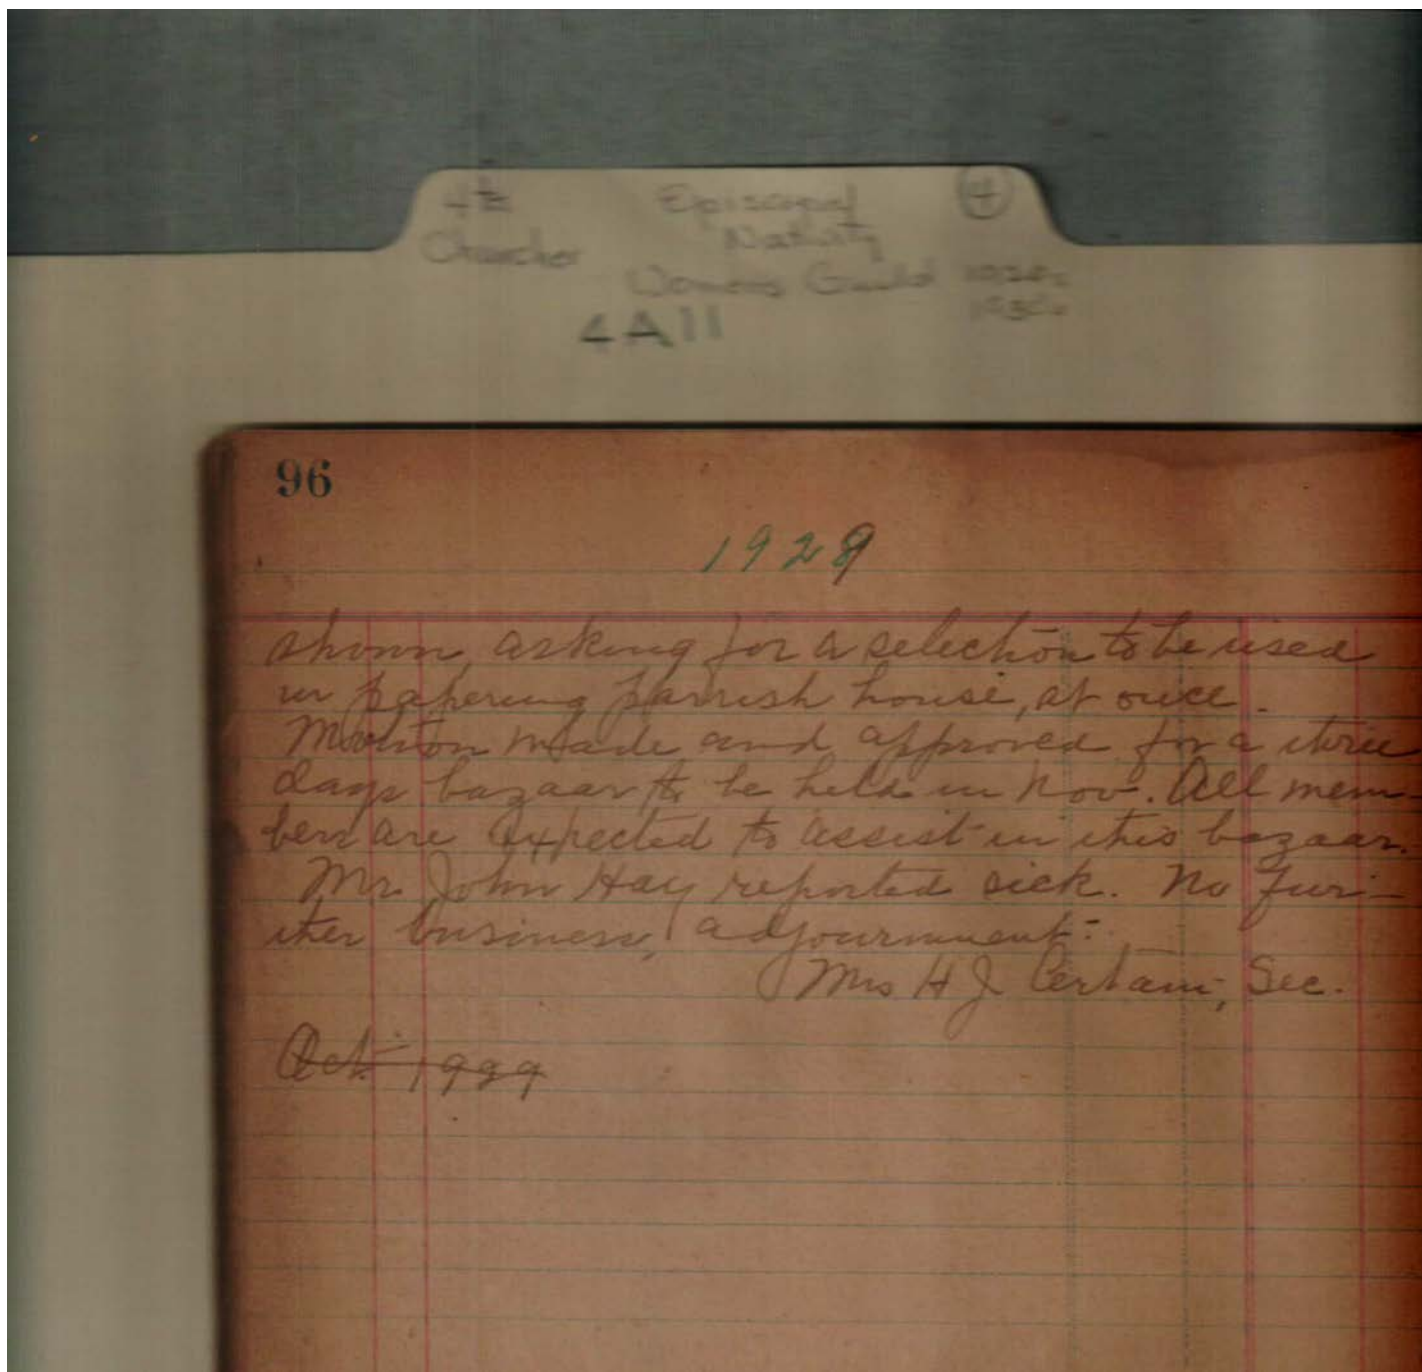 4th Episcopal 4
Churches Nativity
Womens Guild 1920s
1930s
4A11
96
1929
shown, asking for a selection to be used
in papering parrish house, at once.
Motion made and approved for a three
days bazaar to be held in Nov. All mem-
bers are expected to assist in this bazaar.
Mr. John Hay reported sick. No fur-
ther business, adjournment.
Mrs H J Certain, Sec.
Oct. 1929